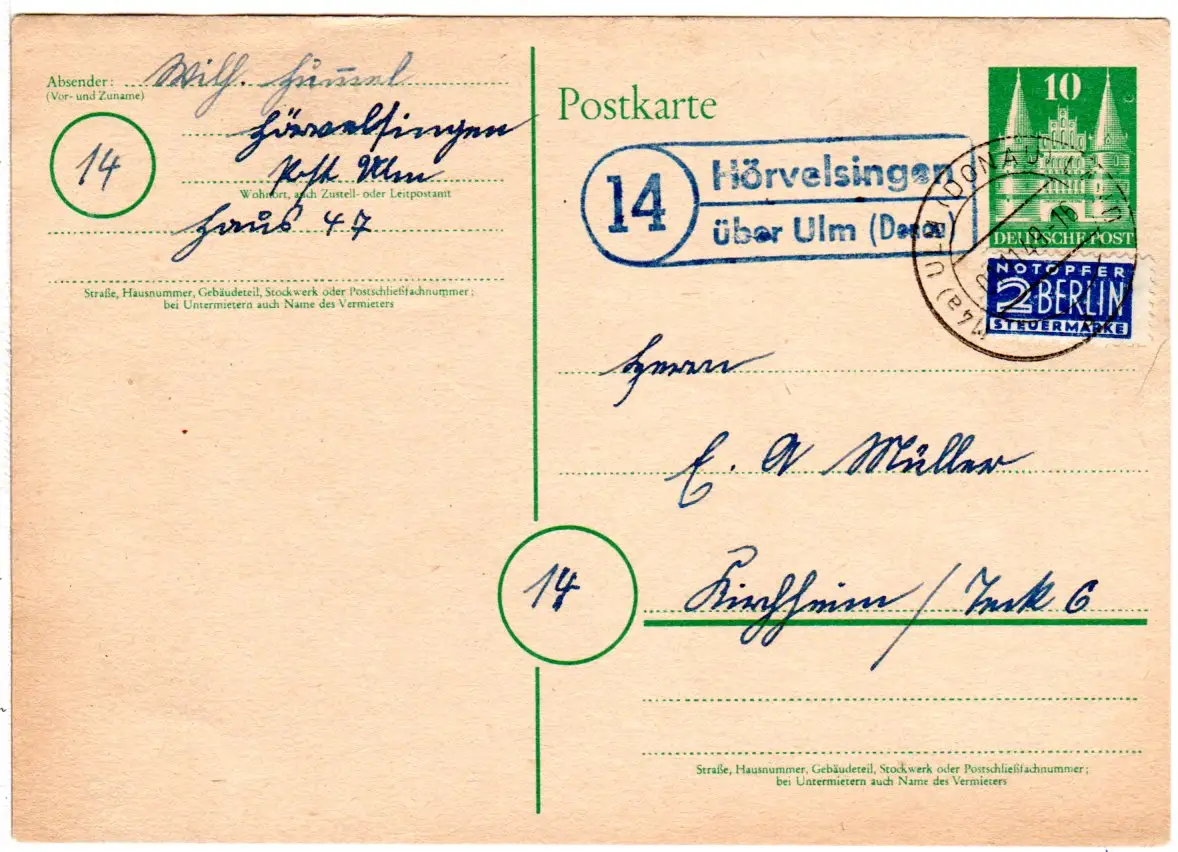 Absender: Wilh. Hummel
(Vor- und Zuname)
14
Hörvelsingen
Post Ulm
Wohnort, auch Zustell- oder Leitpostamt
Haus 47
Straße, Hausnummer, Gebäudeteil, Stockwerk oder Postschließfachnummer;
bei Untermietern auch Name des Vermieters
Postkarte
14
Hörvelsingen
über Ulm (Donau)
10
DEUTSCHE POST
NOTOPFER
2 BERLIN
STEUERMARKE
(14a) ULM (DONAU)
Herrn
E. A Müller
14
Kirchheim / Teck 6
Straße, Hausnummer, Gebäudeteil, Stockwerk oder Postschließfachnummer;
bei Untermietern auch Name des Vermieters